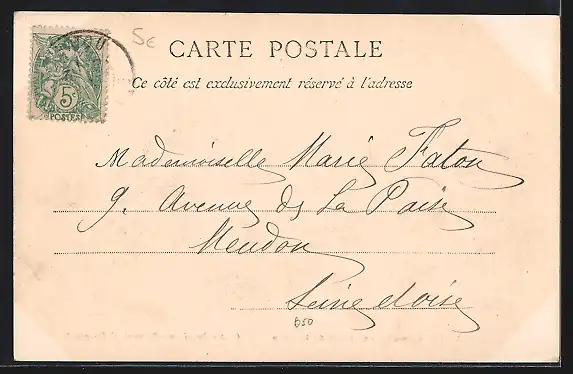 5€
CARTE POSTALE
Ce côté est exclusivement réservé à l'adresse
5
POSTES
Mademoiselle Marie Faton
9. Avenue de La Paix
Meudon
Seine et oise
650